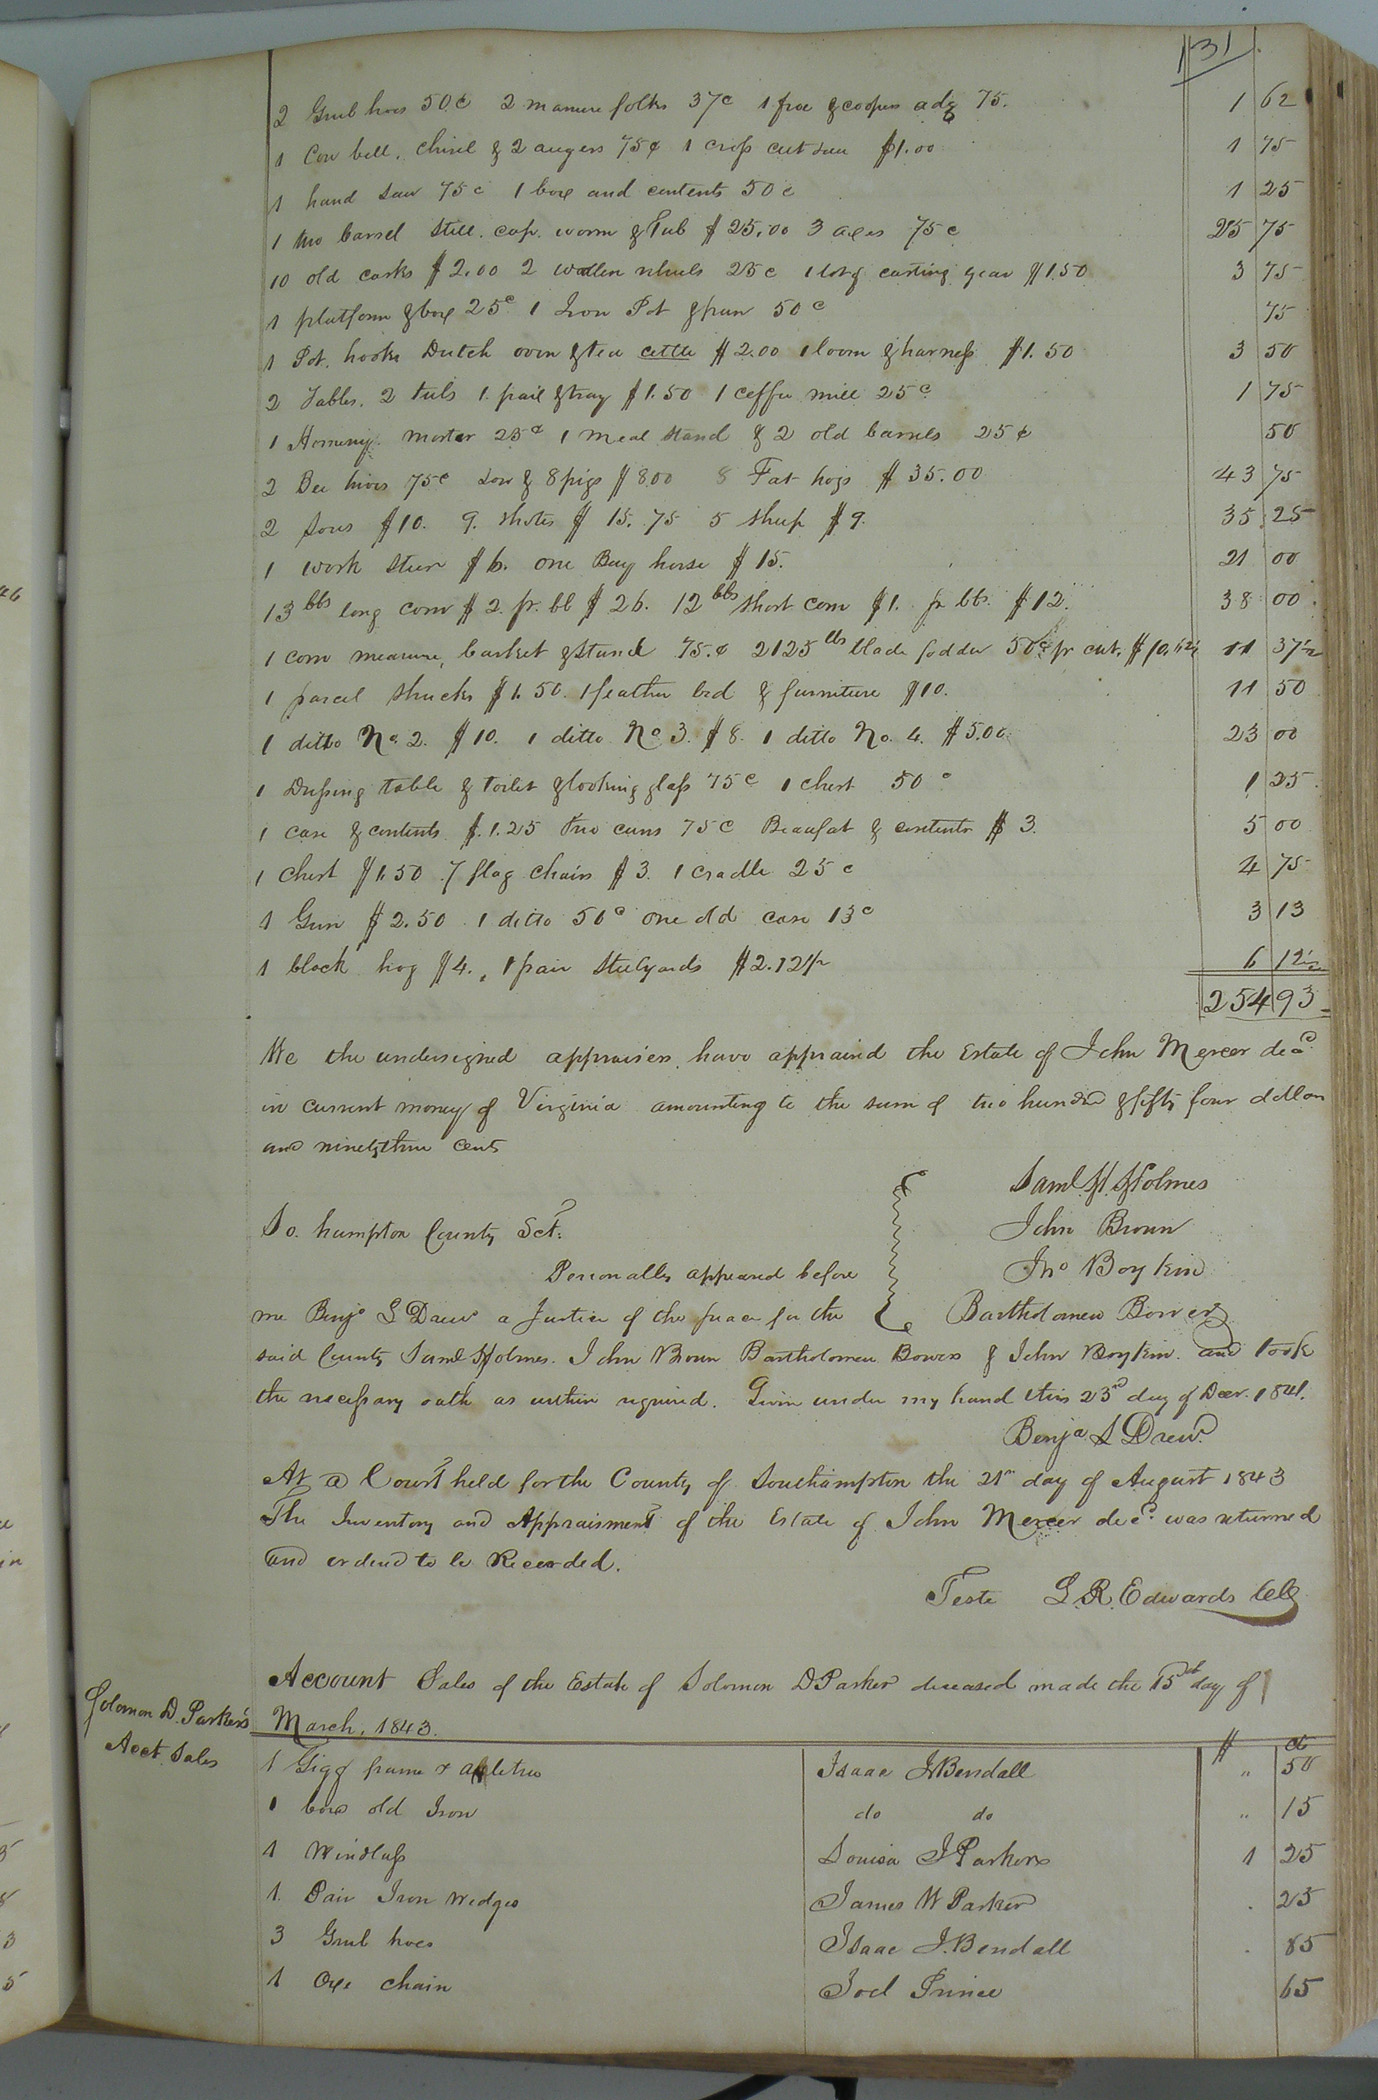 131
2 Grub hoes 50.c 2 manure folks 37c 1 froe & coopers adz 75. 1 62
1 Cow bell. Chisel & 2 augers 75¢ 1 cross cut saw $1.00 1 75
1 hand saw 75c 1 box and contents 50c 1 25
1 two barrel Still. cap. worm & Tub $25.00 3 axes 75c 25 75
10 old casks $2.00 2 wollen wheels 25c 1 lot of carting gear $1.50 3 75
1 platform & box 25c 1 Iron Pot & pan 50c 75
1 Pot. hooks Dutch oven & tea cettle $2.00 1 loom & harness $1.50 3 50
2 Tables. 2 tubs 1. pail & tray $1.50 1 coffee mill 25c 1 75
1 Hominy. mortar 25c 1 meal stand & 2 old barrels 25¢ 50
2 Bee hives 75c Sow & 8 pigs $8.00 8 Fat hogs $35.00 43 75
2 Sows $10. 9. shotes $15.75 5 sheep $9. 35 25
1 work steer $6. one Bay horse $15. 21 00
13 bbs long corn $2. pr. bb $26. 12 bbs short corn $1. pr bb. $12. 38 00
1 corn measure, basket & stand 75.¢ 2125 lbs blade fodder 50c pr cwt. $10.62½ 11 37½
1 parcel shucks $1.50. 1 feather bed & furniture $10. 11 50
1 ditto No 2. $10. 1 ditto No 3. $8. 1 ditto No. 4. $5.00. 23 00
1 Dressing table & toilet & looking glass 75c 1 chest 50c 1 25
1 case & contents $.1.25 two cans 75c Beaufat & contents $3. 5 00
1 Chest $1.50 7 flag chairs $3. 1 cradle 25c 4 75
1 Gun $2.50 1 ditto 50c one old case 13c 3 13
1 block hog $4., 1 pair Steelyards $2.12½ 6 12½
254 93
We the undersigned appraisers. have appraised the Estate of John Mercer decd.
in current money of Virginia amounting to the sum of two hundred & fifty four dollars
and ninety three cents
Saml. H. Holmes
So. hampton County Sct.
John Brown
Personally appeared before
Jno Boykin
me Benja S Drew a Justice of the peace for the
Bartholomew Bowers
said County Saml Holmes. John Brown Bartholomew Bowers & John Boykin. and took
the necessary oath as within required. Given under my hand this 23rd day of Decr. 1841.
Benja S Drew.
At a Court held for the County of Southampton the 21st day of August 1843
The Inventory and Appraisment of the Estate of John Mercer decd. was returned
and ordered to be Recorded.
Teste L. R. Edwards Clk
Solomon D. Parker's
Acct. Sales
Account Sales of the Estate of Solomon D Parker deceased made the 15th day of
March, 1843.
$ ct
1 Gigg frame & axletree Isaac J Bendall " 50
1 box old Iron do do " 15
1 Windlass Louisa J Parker 1 25
1. Pair Iron Wedges James W Parker . 25
3 Grub hoes Isaac J. Bendall . 85
1 Oxe chain Joel Prince 65